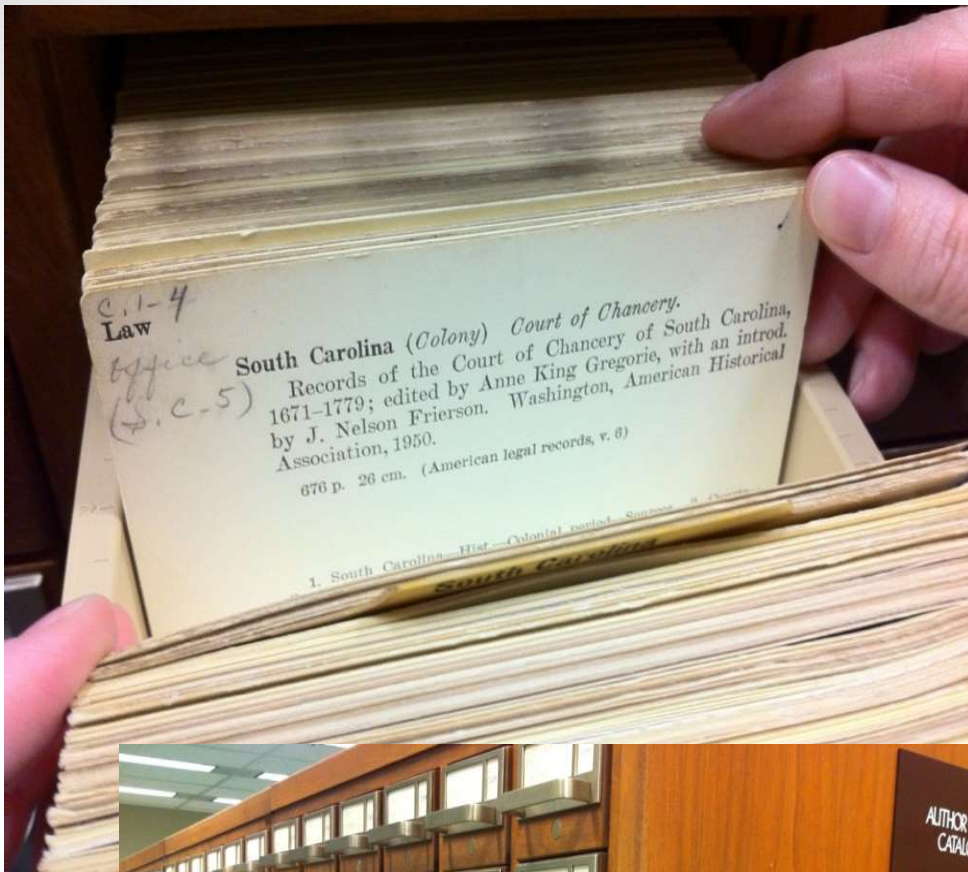 c. 1-4
Law
Office
(S.C.-5)
South Carolina (Colony) Court of Chancery.
Records of the Court of Chancery of South Carolina,
1671–1779; edited by Anne King Gregorie, with an introd.
by J. Nelson Frierson. Washington, American Historical
Association, 1950.
676 p. 26 cm. (American legal records, v. 6)
1. South Carolina—Hist.—Colonial period—Sources. 2. Courts
South Carolina
AUTHOR